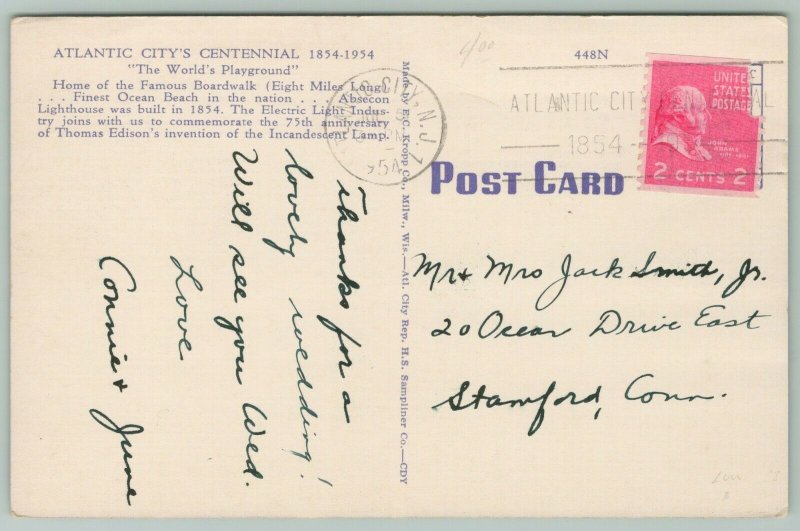 ATLANTIC CITY'S CENTENNIAL 1854-1954
"The World's Playground"
Home of the Famous Boardwalk (Eight Miles Long)
. . . Finest Ocean Beach in the nation . . . Absecon
Lighthouse was built in 1854. The Electric Light Indus-
try joins with us to commemorate the 75th anniversary
of Thomas Edison's invention of the Incandescent Lamp.
Thanks for a
lovely wedding!
Will see you Wed.
Love
Connie + June
Made by E. C. Kropp Co., Milw., Wis.—Atl. City Rep. H.S. Sampliner Co.—CDY
448N
CITY, N.J.
ATLANTIC CIT
1854 -
UNITED
STATES
POSTAGE
JOHN
ADAMS
2 CENTS 2
POST CARD
Mr + Mrs Jack Smith, Jr.
20 Ocean Drive East
Stamford, Conn.